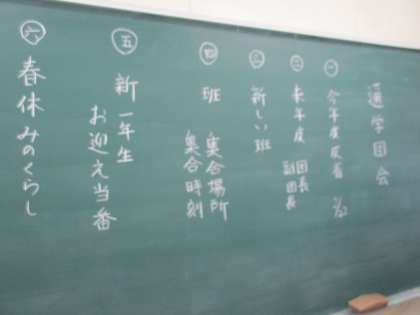 通学団会
一 今年度反省
二 来年度 団長
副団長
三 新しい班
四 班 集合場所
集合時刻
五 新一年生
お迎え当番
六 春休みのくらし